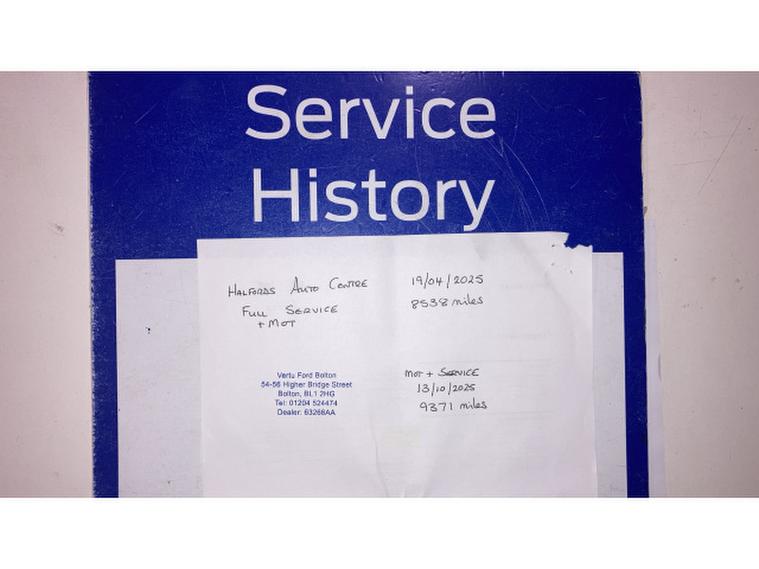 Service
History
HALFORDS AUTO CENTRE
19/04/2025
FULL SERVICE
8538 miles
+ MOT
Vertu Ford Bolton
54-56 Higher Bridge Street
Bolton, BL1 2HG
Tel: 01204 524474
Dealer: 63268AA
MOT + SERVICE
13/10/2025
9371 miles